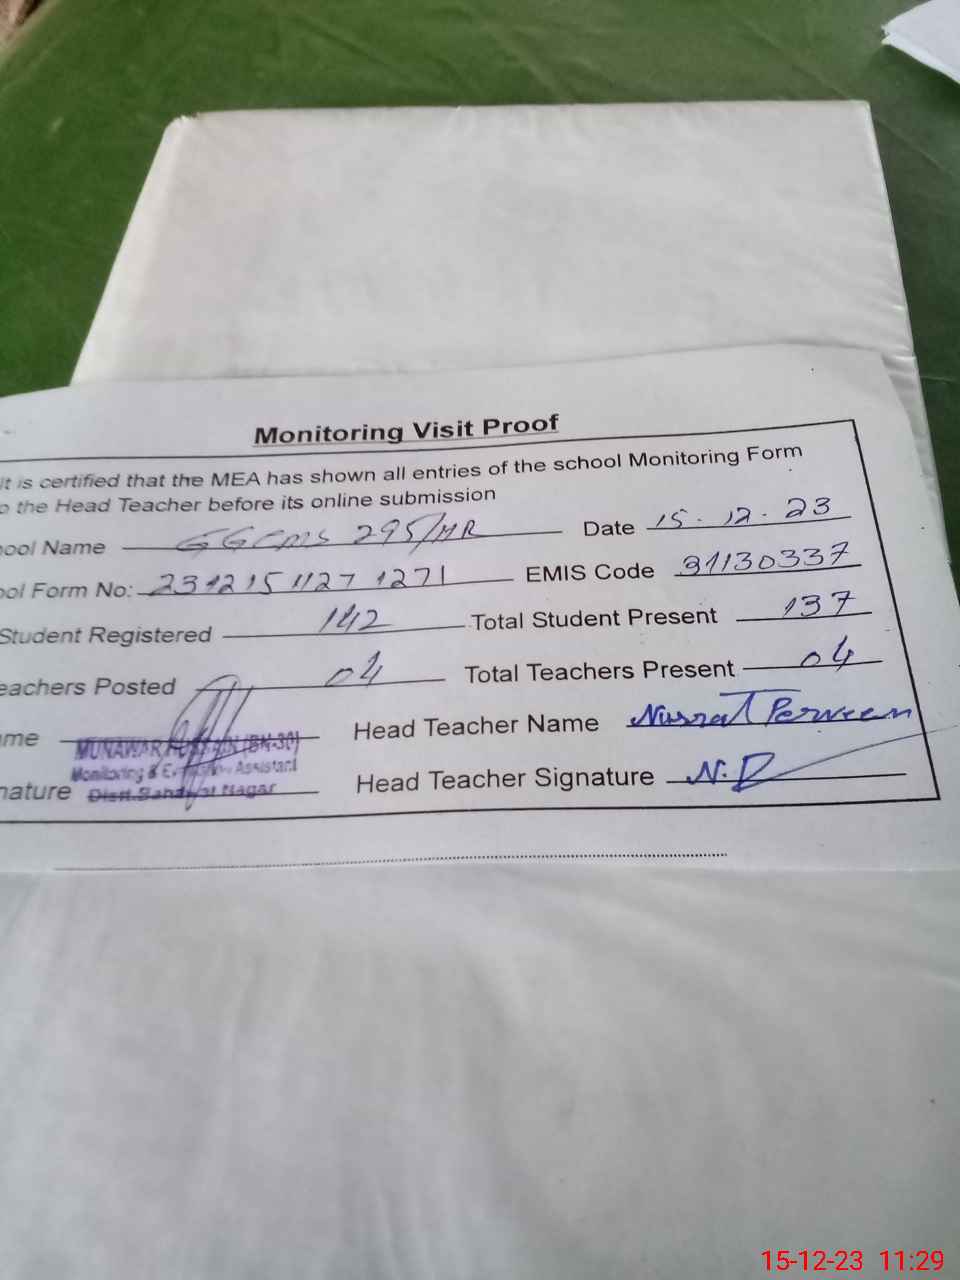 Monitoring Visit Proof
it is certified that the MEA has shown all entries of the school Monitoring Form
o the Head Teacher before its online submission
ool Name GGCMS 295/HR Date 15.12.23
ool Form No: 231215 1127 1271 EMIS Code 31130337
Student Registered 142 Total Student Present 137
eachers Posted 04 Total Teachers Present 04
me MUNAWAR HUSSAIN (BN-30) Head Teacher Name Nusrat Perveen
Monitoring & Evaluation Assistant
nature Distt. Bahawal Nagar Head Teacher Signature N.P
15-12-23 11:29